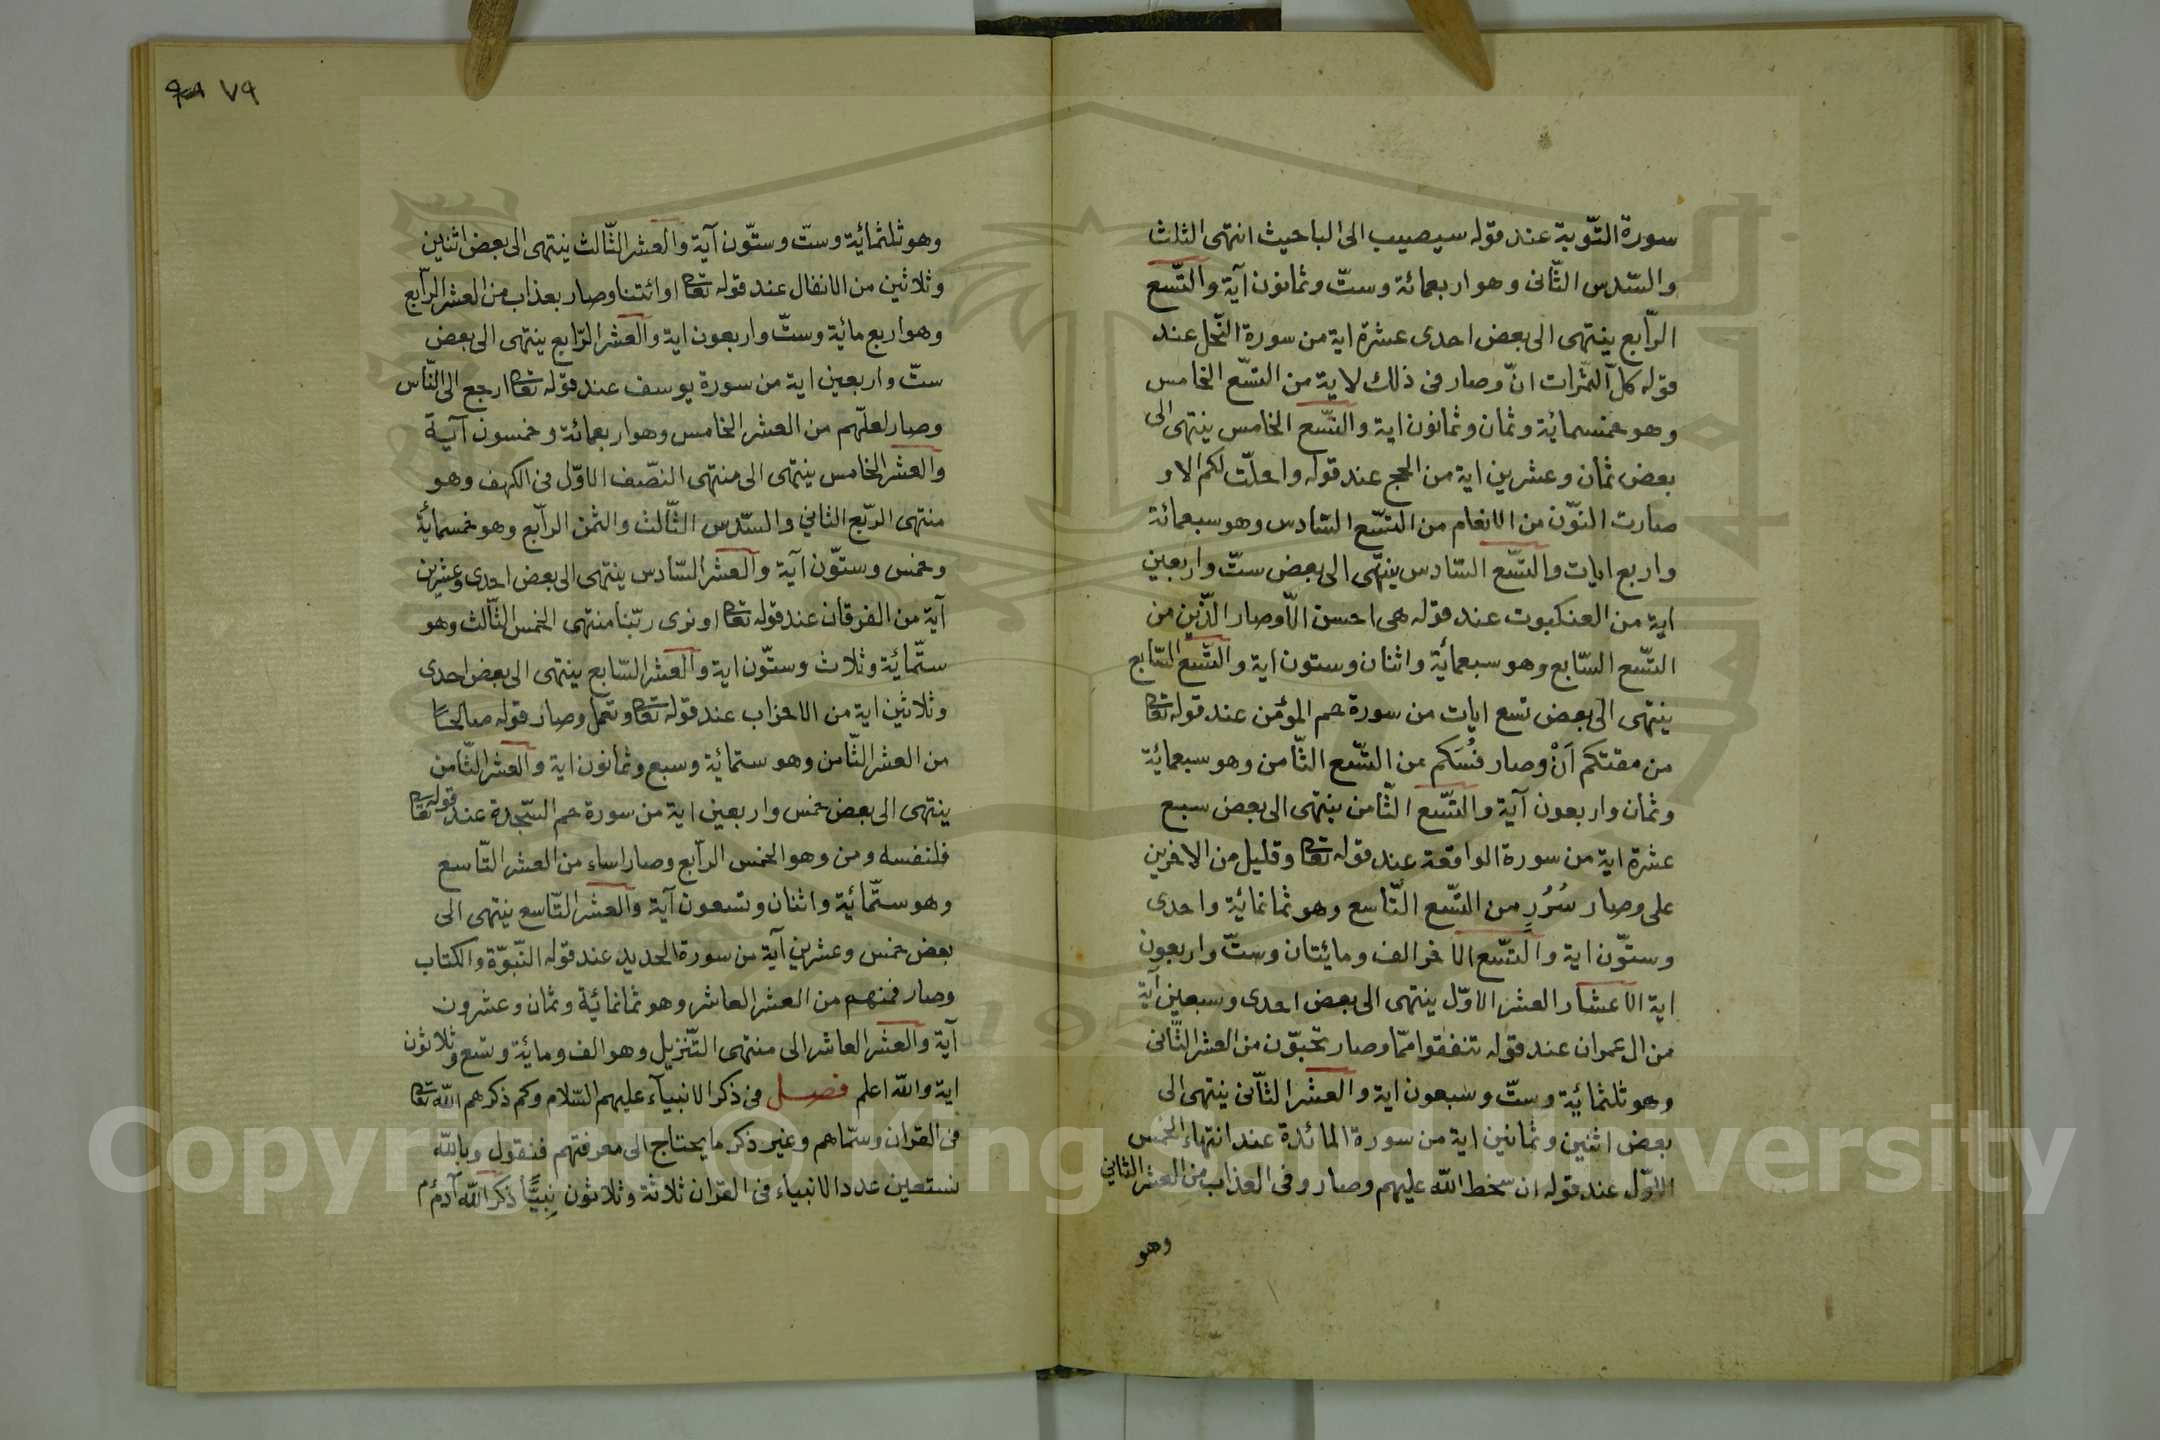 سورة التّوبة عند قوله سيصيب الى الباحيث انتهى الثلث
والسّدس الثّانى وهو اربعمائة وستّ وثمانون آية والتّسع
الرّابع ينتهى الى بعض احدى عشرة اية من سورة النّحل عند
قوله كل الثّمرات انّ وصار فى ذلك لاية من التسّع الخامس
وهو خمسمائة وثمان وثمانون اية والتسّع الخامس ينتهى الى
بعض ثمان وعشرين اية من الحج عند قوله واحلّت لكم الا و
صارت النوّن من الانعام من التسّع السّادس وهو سبعمائة
واربع ايات والتسّع السّادس ينتهى الى بعض ستّ واربعين
اية من العنكبوت عند قوله هى احسن الّا وصار الّذين من
التسّع السّابع وهو سبعمائة واثنان وستون اية والتسّع السّابع
ينتهى الى بعض تسع ايات من سورة حم المؤمن عند قوله تعا
من مقتكم اَنْ وصار فُسَكم من التسّع الثّامن وهو سبعمائة
وثمان واربعون آية والتسّع الثّامن ينتهى الى بعض سبع
عشرة اية من سورة الواقعة عند قوله تعا وقليل من الاخرين
على وصار سُرُرٍ من التسّع التّاسع وهو ثمانمائة واحدى
وستّون اية والتسّع الاخر الف ومايئتان وستّ واربعون
اية الاعشار العشر الاوّل ينتهى الى بعض احدى وسبعين آية
من ال عمران عند قوله تنفقوا ممّا وصار تحبّون من العشر الثّانى
وهو ثلثمائة وستّ وسبعون اية والعشر الثّانى ينتهى الى
بعض اثنين وثمانين اية من سورة المائدة عند انتهاء الخمس
الاوّل عند قوله ان سخط الله عليهم وصار وفى العذاب من العشر الثانى
وهو
٧٩
وهو ثلثمائة وستّ وستّون آية والعشر الثّالث ينتهى الى بعض اثنين
وثلاثين من الانفال عند قوله تعا او ائتنا وصار بعذاب من العشر الرّابع
وهو اربع مائة وستّ واربعون اية والعشر الرّابع ينتهى الى بعض
ستّ واربعين اية من سورة يوسف عند قوله تعا ارجع الى النّاس
وصار لعلّهم من العشر الخامس وهو اربعمائة وخمسون آية
والعشر الخامس ينتهى الى منتهى النصّف الاوّل فى الكهف وهو
منتهى الربّع الثانى والسّدس الثّالث والثمن الرّابع وهو خمسمائة
وخمس وستّون آية والعشر السّادس ينتهى الى بعض احدى وعشرين
آية من الفرقان عند قوله تعا او نرى ربّنا منتهى الخمس الثّالث وهو
ستّمائة وثلاث وستّون اية والعشر السّابع ينتهى الى بعض احدى
وثلاثين اية من الاحزاب عند قوله تعا وتعمل وصار قوله صالحًا
من العشر الثّامن وهو ستمائة وسبع وثمانون اية والعشر الثّامن
ينتهى الى بعض خمس واربعين اية من سورة حم السّجدة عند قوله تعا
فلنفسه ومن وهو الخمس الرّابع وصار اساء من العشر التّاسع
وهو ستّمائة واثنان وتسعون آية والعشر التّاسع ينتهى الى
بعض خمس وعشرين آية من سورة الحديد عند قوله النّبوّة والكتاب
وصار فمنهم من العشر العاشر وهو ثمانمائة وثمان وعشرون
آية والعشر العاشر الى منتهى التّنزيل وهو الف ومائة وتسع وثلاثون
اية والله اعلم فصل فى ذكر الانبيآء عليهم السّلام وكم ذكرهم الله تعا
فى القران وسمّاهم وغير ذكر ما يحتاج الى معرفتهم فنقول وبالله
نستعين عدد الانبياء فى القران ثلاثة وثلاثون نبيًّا ذكر الله آدم م
Copyright © King Saud University